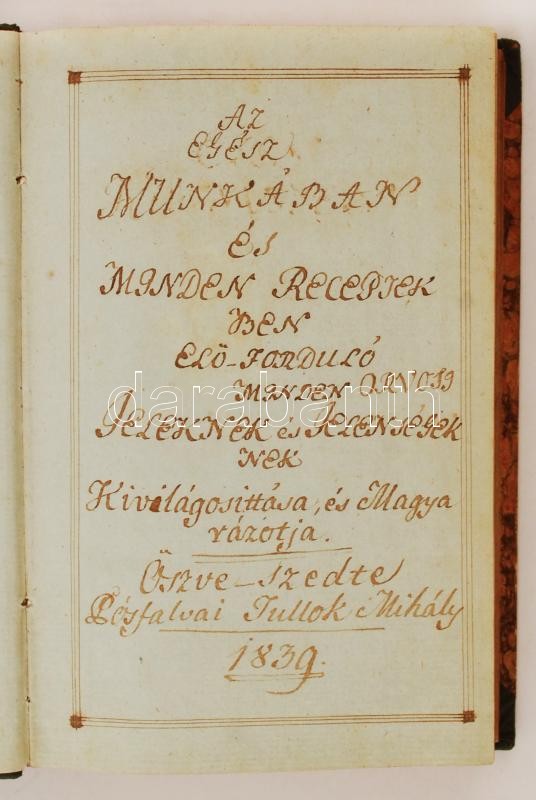 AZ
EGÉSZ
MUNKÁBAN
ÉS
MINDEN RECEPTEK
BEN
ELŐ-FORDULÓ
MINDEN ORVOSI
JELEKNEK és JELENSÉGEK
NEK
Kivilágosittása, és Magya
rázotja.
Öszve-szedte
Pésfalvai Tullok Mihály
1839.
darabanth